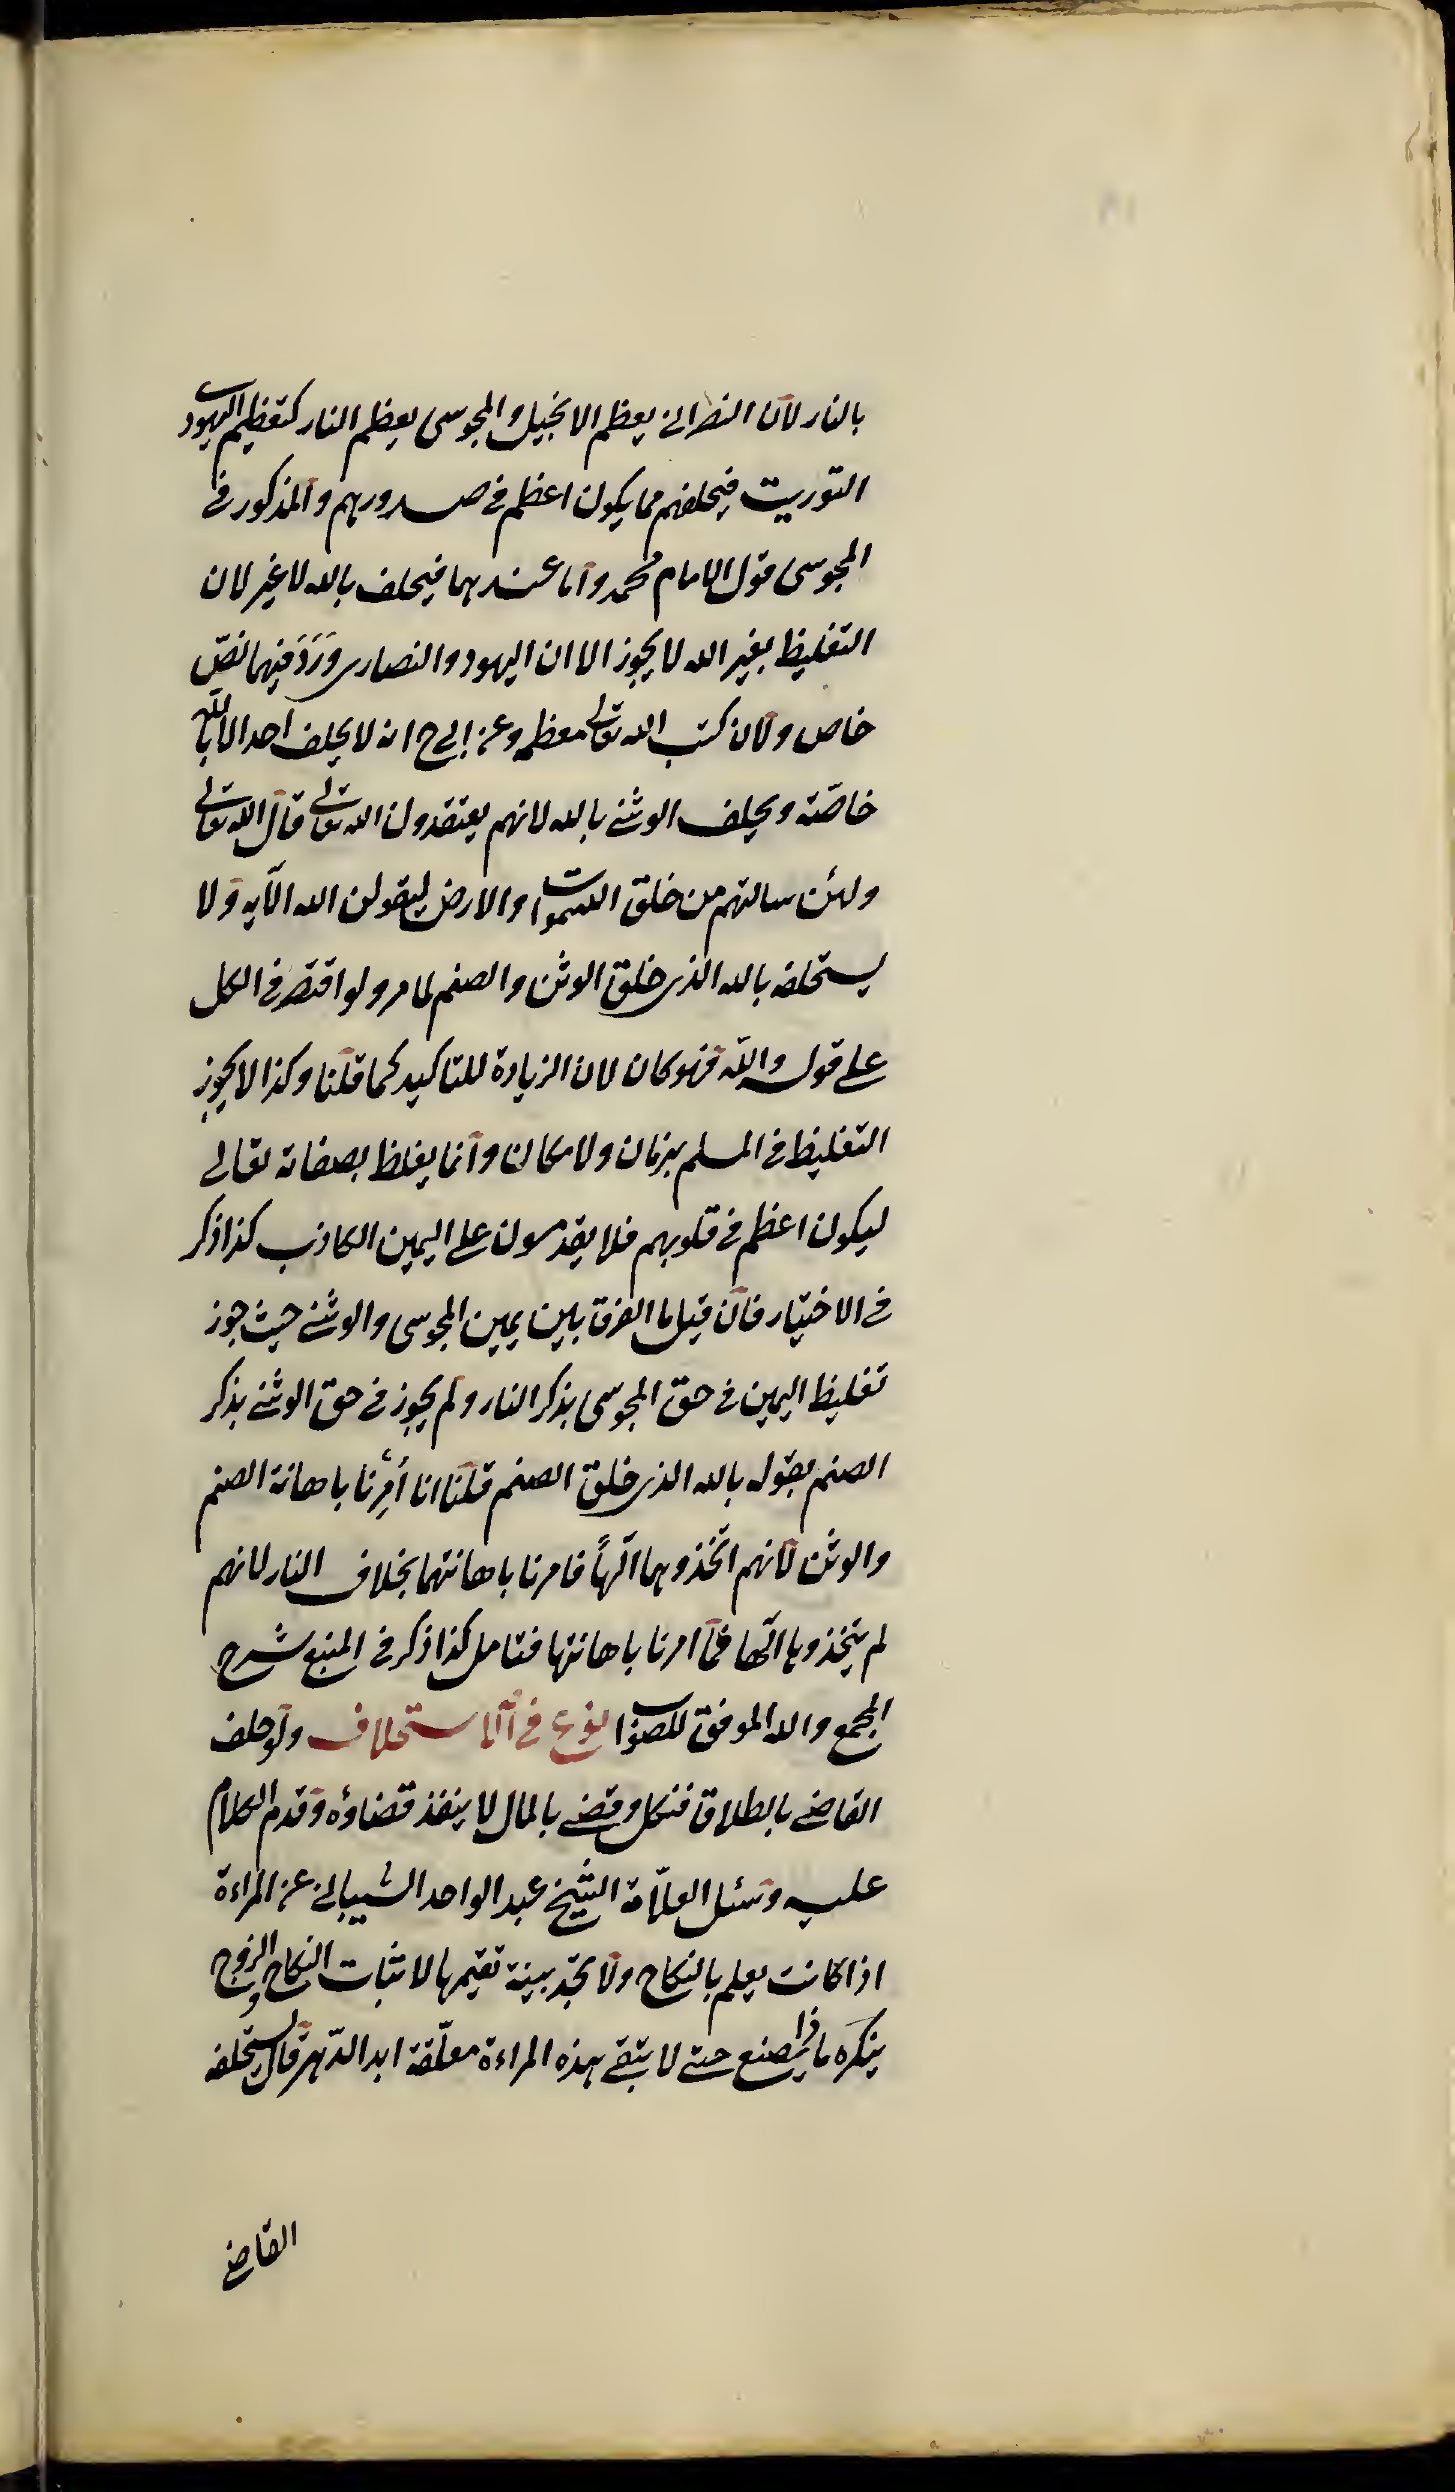 بالنار لان النصرانى يعظم الانجيل والمجوسى يعظم النار كتعظيم اليهود
التوريت فيحلفهم مما يكون اعظم فى صدورهم والمذكور فى
المجوسى قول الامام محمد واما عندهما فيحلف بالله لا غير لان
التغليظ بغير الله لا يجوز الا ان اليهود والنصارى وَرَدَ فيهما نصّ
خاص ولان كتب الله تعالى معظم وعن ابى ح انه لا يحلف احد الا بالله
خاصّة ويحلف الوثنى بالله لانهم يعتقدون الله تعالى قال الله تعالى
ولئن سالتهم من خلق السموات والارض ليقولن الله الآيه ولا
يستحلفه بالله الذى خلق الوثن والصنم لما مر ولو اقتصر فى الكل
على قوله والله فهو كان لان الزيادة للتاكيد كما قلنا وكذا لا يجوز
التغليظ فى المسلم بزمان ولا مكان وانما يغلظ بصفاته تعالى
ليكون اعظم فى قلوبهم فلا يقدمون على اليمين الكاذب كذا ذكر
فى الاختيار فان قيل ما الفرق بين يمين المجوسى والوثنى حيث جوز
تغليظ اليمين فى حق المجوسى بذكر النار ولم يجوز فى حق الوثنى بذكر
الصنم بقوله بالله الذى خلق الصنم قلنا انا أُمِرْنا باهانة الصنم
والوثن لانهم اتّخذوهما الٓهاً فامرنا باهانتهما بخلاف النار لانهم
لم يتخذوها الٓها فما امرنا باهانتها فتامل كذا ذكر فى المنبع شرح
المجمع والله الموفق للصواب نوع فى الاستحلاف ولو حلف
القاضى بالطلاق فنكل وقضى بالمال لا ينفذ قضاؤه وقدم الكلام
عليه وسئل العلاّمة الشيخ عبد الواحد الشيبانى عن المراءة
اذا كانت يعلم بالنكاح ولا تجد بينة تقيمها لاثبات النكاح والزوج
ينكره ماذا يصنع حتى لا يتبقى هذه المراءة معلّقة ابد الدّهر قال يستحلفه
القاضى